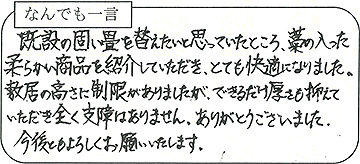 なんでも一言
既設の固い畳を替えたいと思っていたところ、藁の入った
柔らかい商品を紹介していただき、とても快適になりました。
敷居の高さに制限がありましたが、できるだけ厚さも抑えて
いただき全く支障はありません。ありがとうございました。
今後ともよろしくお願いいたします。